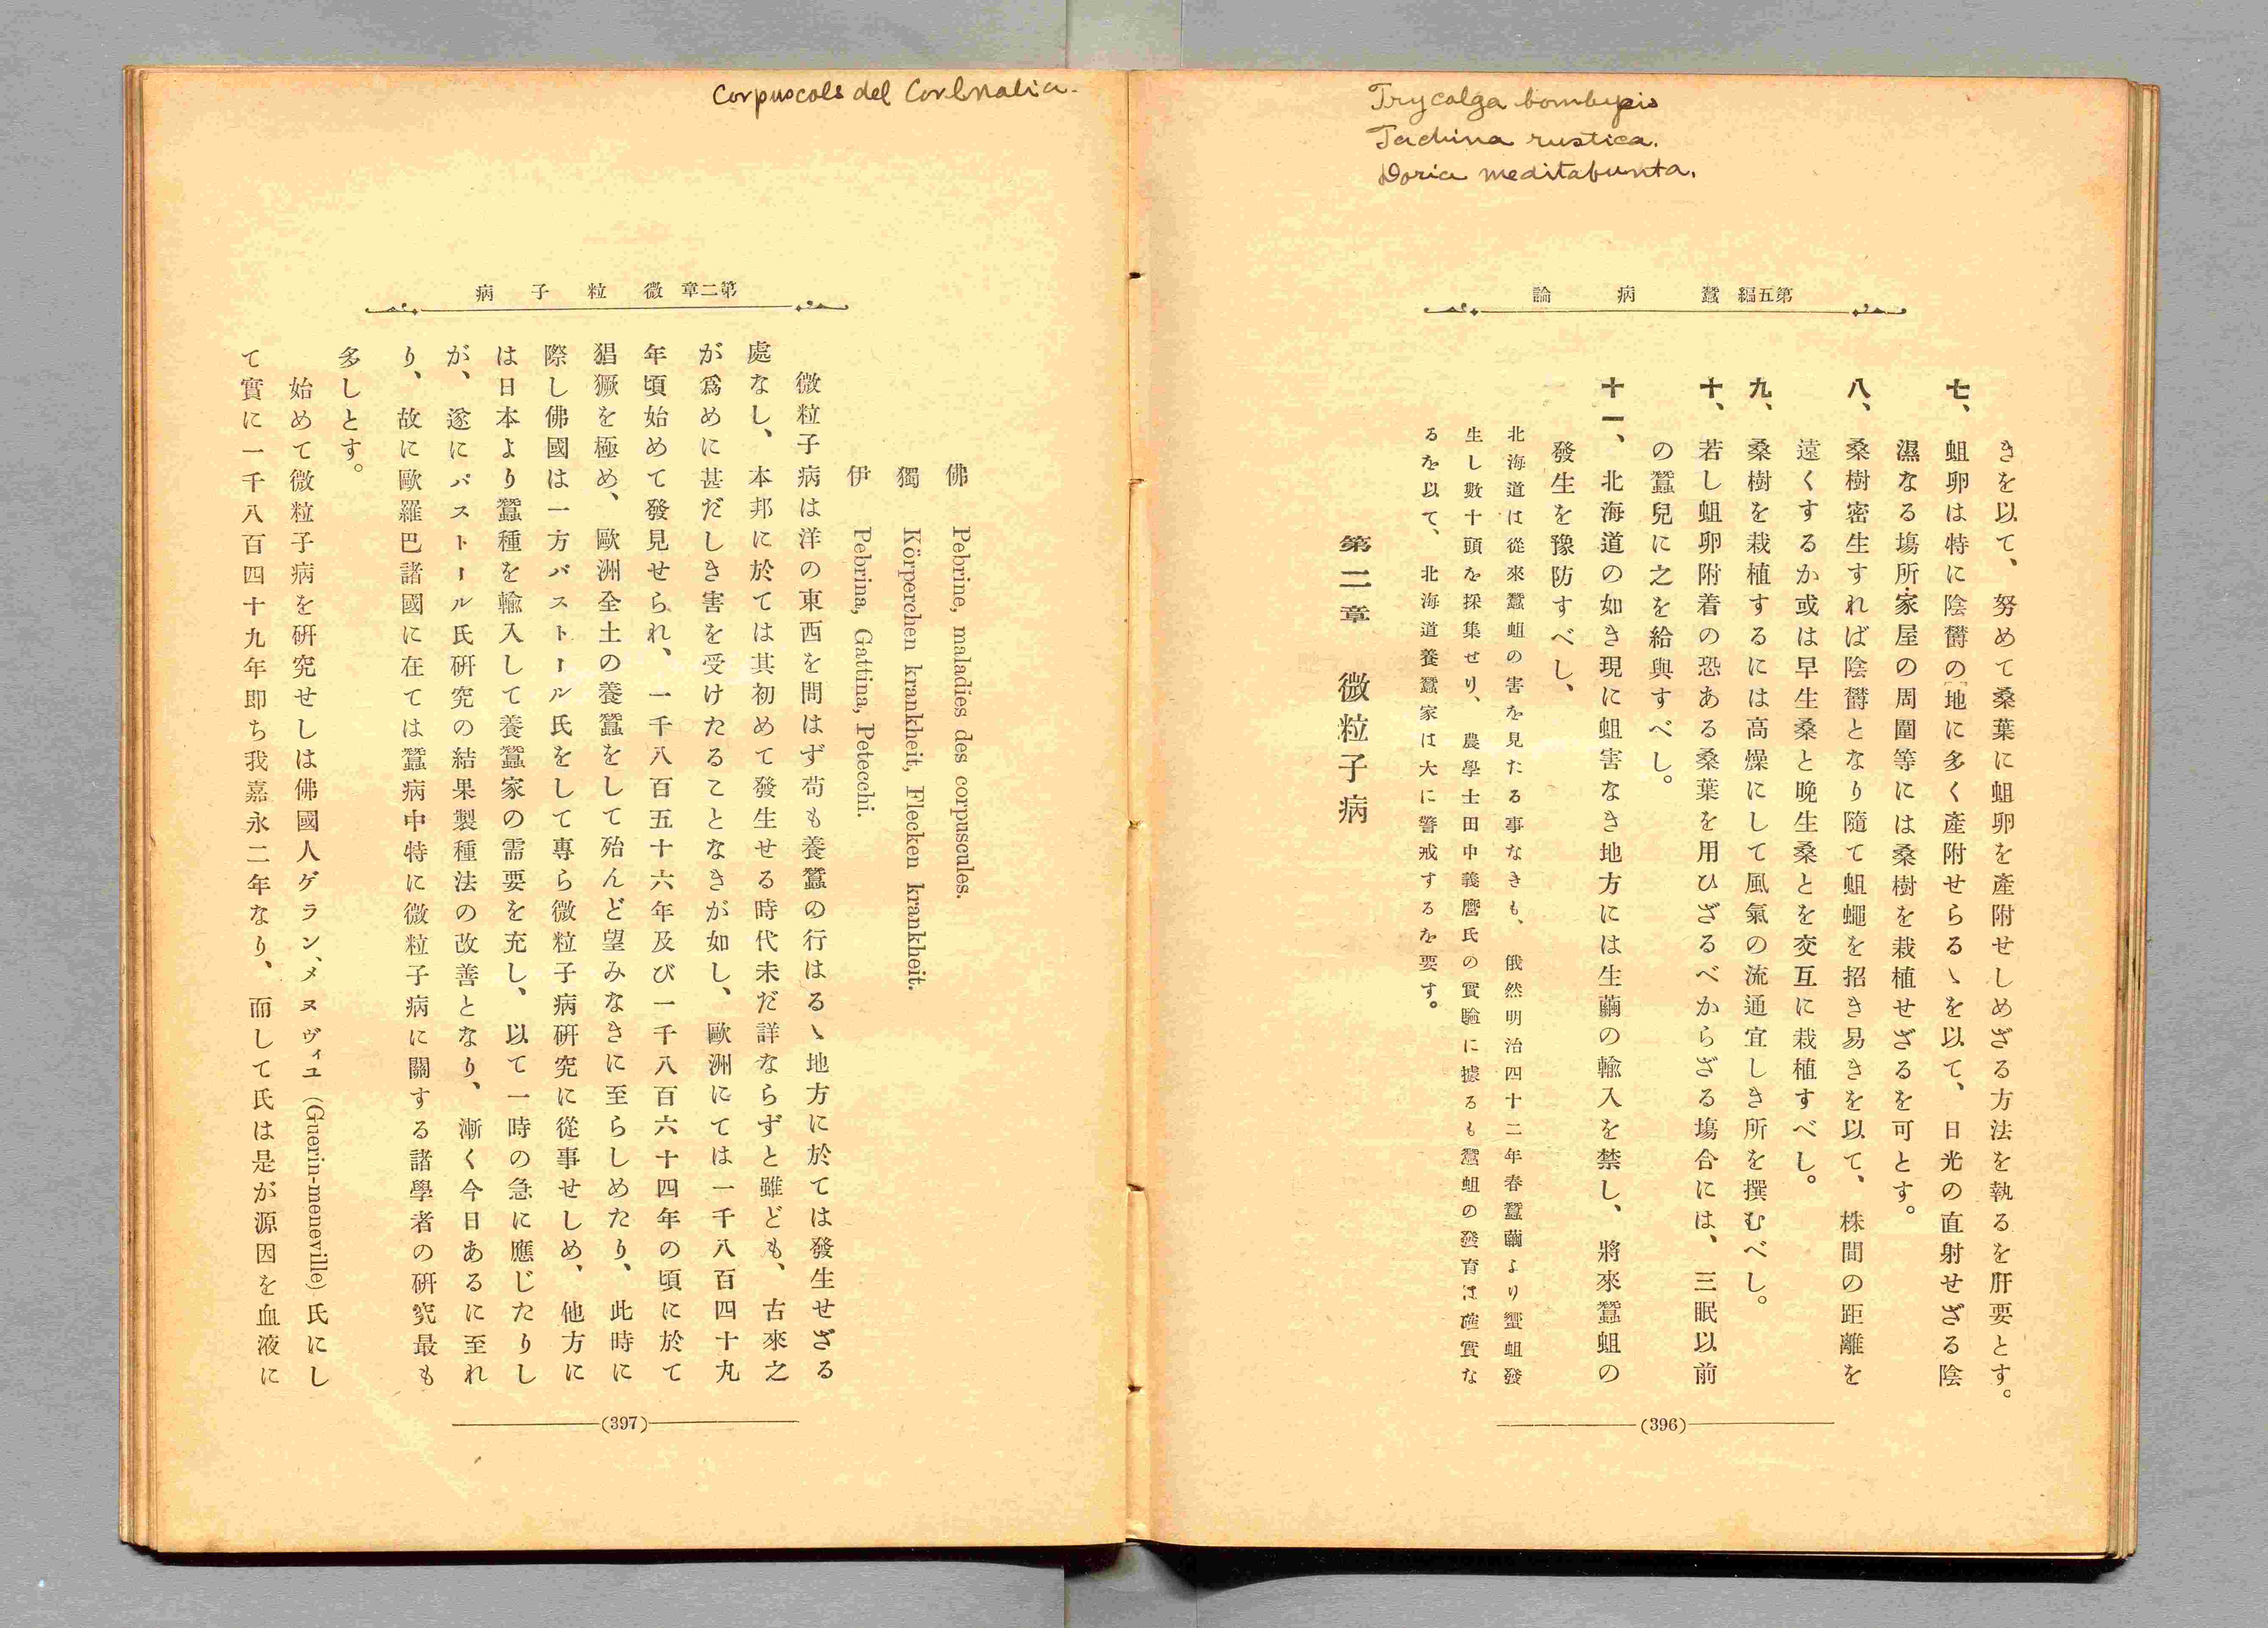 Trycalga bombypis
Tachina rustica.
Doria meditabunta.
第五編 蠶病論
きを以て、努めて桑葉に蛆卵を產附せしめざる方法を執るを肝要とす。
七、蛆卵は特に陰欝の地に多く產附せらるゝを以て、日光の直射せざる陰
濕なる塲所・家屋の周圍等には桑樹を栽植せざるを可とす。
八、桑樹密生すれば陰欝となり隨て蛆蠅を招き易きを以て、株間の距離を
遠くするか或は早生桑と晚生桑とを交互に栽植すべし。
九、桑樹を栽植するには高燥にして風氣の流通宜しき所を撰むべし。
十、若し蛆卵附着の恐ある桑葉を用ひざるべからざる塲合には、三眠以前
の蠶兒に之を給與すべし。
十一、北海道の如き現に蛆害なき地方には生繭の輸入を禁し、將來蠶蛆の
發生を豫防すべし、
北海道は從來蠶蛆の害を見たる事なきも、俄然明治四十二年春蠶繭より蠁蛆發
生し數十頭を採集せり、農學士田中義麿氏の實驗に據るも蠶蛆の發育は確實な
るを以て、北海道養蠶家は大に警戒するを要す。
第二章 微粒子病
(396)
Corpuscols del Corlnalia.
第二章 微粒子病
佛 Pebrine, maladies des corpuscules.
獨 Körperchen krankheit, Flecken krankheit.
伊 Pebrina, Gattina, Petecchi.
微粒子病は洋の東西を問はず苟も養蠶の行はるゝ地方に於ては發生せざる
處なし、本邦に於ては其初めて發生せる時代未だ詳ならずと雖ども、古來之
が爲めに甚だしき害を受けたることなきが如し、歐洲にては一千八百四十九
年頃始めて發見せられ、一千八百五十六年及び一千八百六十四年の頃に於て
猖獗を極め、歐洲全土の養蠶をして殆んど望みなきに至らしめたり、此時に
際し佛國は一方パストール氏をして專ら微粒子病硏究に從事せしめ、他方に
は日本より蠶種を輸入して養蠶家の需要を充し、以て一時の急に應じたりし
が、遂にパストール氏硏究の結果製種法の改善となり、漸く今日あるに至れ
り、故に歐羅巴諸國に在ては蠶病中特に微粒子病に關する諸學者の硏究最も
多しとす。
始めて微粒子病を硏究せしは佛國人ゲラン、メヌヴィユ (Guerin-meneville) 氏にし
て實に一千八百四十九年即ち我嘉永二年なり、而して氏は是が源因を血液に
(397)